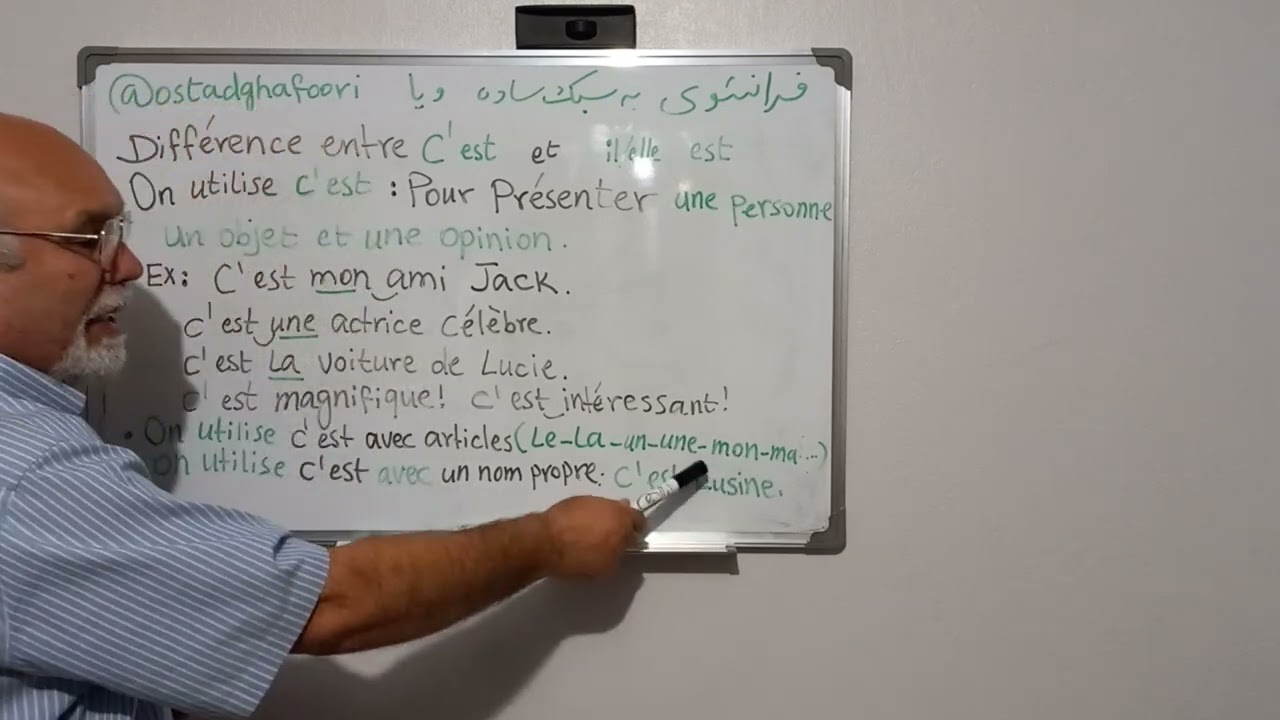 @ostadghafoori فرانسوی به سبک ساده و با
Différence entre C'est et il/elle est
On utilise c'est : Pour Présenter une personne
un objet et une opinion.
Ex: C'est mon ami Jack.
C'est une actrice célèbre.
C'est La voiture de Lucie.
C'est magnifique! C'est intéressant!
• On utilise c'est avec articles (Le-La-un-une-mon-ma...)
On utilise c'est avec un nom propre. C'est